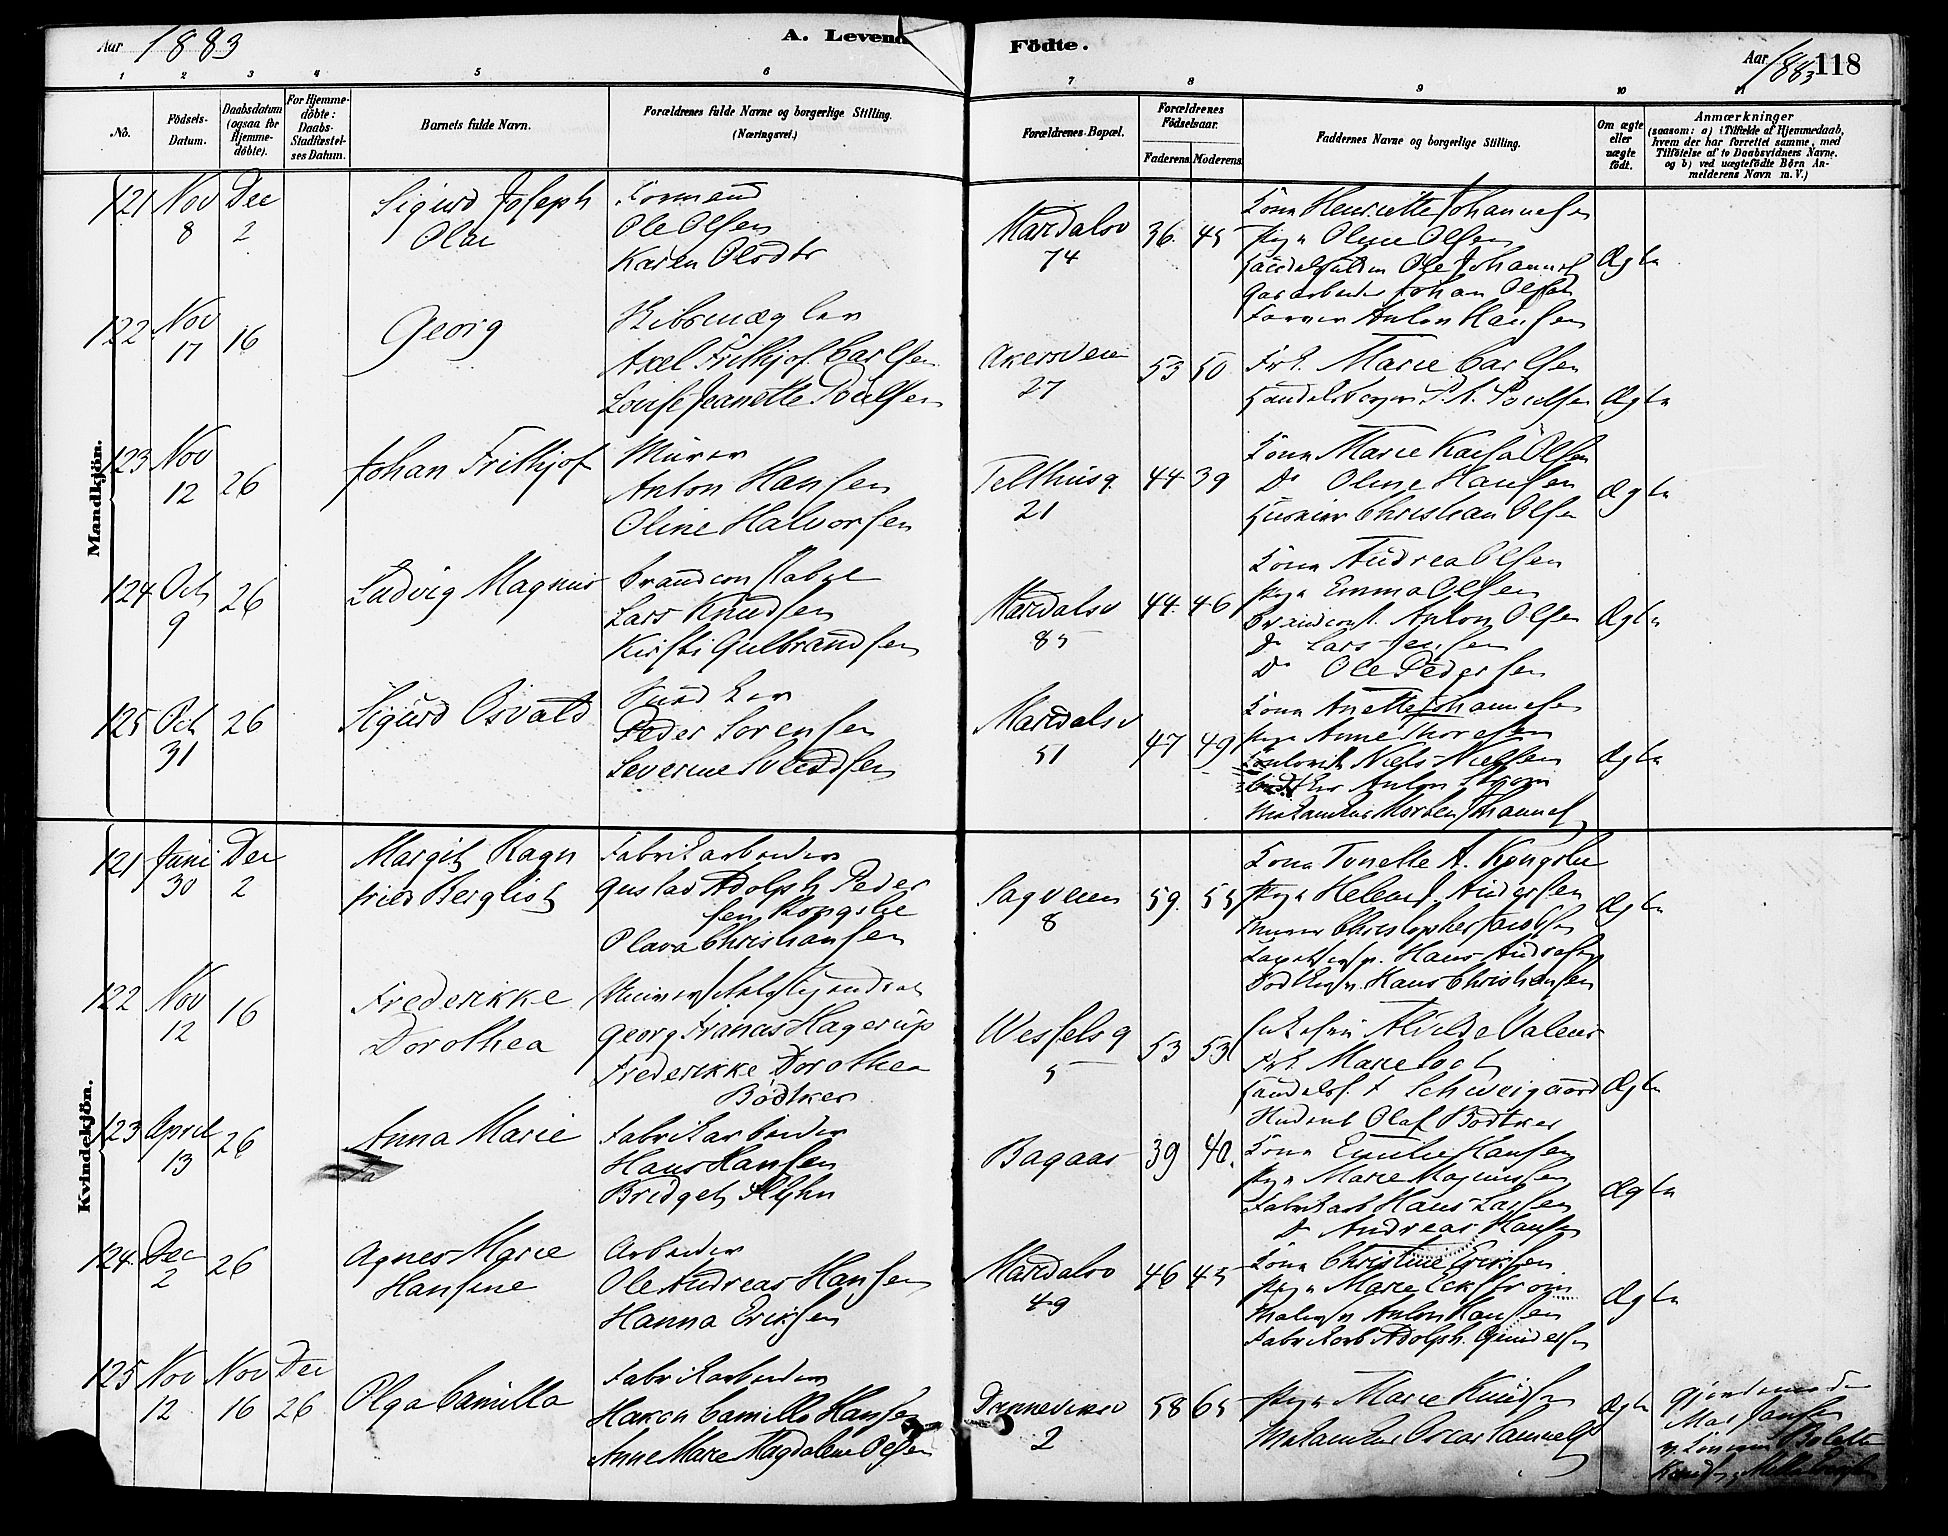 Aar 1883
A. Levend
Födte.
Aar 1883
118
1 2 3 4 5 6 7 8 9 10 11
No.
Födsels-
Datum.
Daabsdatum
(ogsaa for
Hjemme-
döbte).
For Hjemme-
döbte:
Daabs-
Stadfæstel-
ses Datum.
Barnets fulde Navn.
Forældrenes fulde Navne og borgerlige Stilling.
(Næringsvei.)
Forældrenes Bopæl.
Forældrenes
Födselsaar.
Faderens. Moderens.
Faddernes Navne og borgerlige Stilling.
Om ægte
eller
uægte
födt.
Anmærkninger
(saasom: a) i Tilfælde af Hjemmedaab,
hvem der har forrettet samme, med
Tilföielse af to Daabsvidners Navne.
og b) ved uægtefödte Börn An-
melderens Navn m. V.)
Mandkjön.
121 Nov 8 Dec 2
Sigurd Joseph
Olai
Formand
Ole Olsen
Karen Olsdtr
Maridalsv
74
36. 45
Kona Henriette Johannesen
Pige Oline Olsen
Ole Johannes
Gasarbeider Johan Olsen
Farver Anton Hansen
Ægte
122 Nov 17 16
Georg
Skibsmægler
Axel Frithjof Carlsen
Lovise Jeanette Poulsen
Akersveie
27
53 50
Frk. Marie Carlsen
Handelsborger P. A. Poulsen
Ægte
123 Nov 12 26
Johan Frithjof
Murer
Anton Hansen
Oline Halvorsen
Telthusg.
21
44 39
Kona Marie Kaisa Olsen
Do Oline Hansen
Christian Olsen
Ægte
124 Oct 9 26
Ludvig Magnus
Brandconstabel
Lars Knudsen
Kirsti Gulbrandsen
Maridalsv
85
44. 46
Kona Andrea Olsen
Pige Emma Olsen
Brandconst. Anton Olsen
Do Lars Jensen
Do Ole Pedersen
Ægte
125 Oct 31 26
Sigurd Osvald
Peder Sorensen
Severine Svendsen
Maridalsv
51
47 49
Kona Anette Johannesen
Pige Anne Thoresen
Niels Nielsen
Anton Strøm
Morten Johannes
Ægte
Kvindekjön.
121 Juni 30 Dec 2
Margit Ragn
fried Bergliot
Fabrikarbeider
Gustav Adolph Peder
sen Kongslie
Olava Christiansen
Sagveien
8
59. 55
Kona Tonette A. Kongslie
Pige Helene J. Andersen
Murer Christopher Jacobsen
Hans Andresen
Hans Christiansen
Ægte
122 Nov 12 16
Frederikke
Dorothea
Georg Francis Hagerup
Frederikke Dorothea
Bödtker
Wesselsg
5
53 53
Alvilde
Frk Marie
Schweigaard
Student Olaf Bödtker
Ægte
123 April 13 26
Anna Marie
Fabrikarbeider
Hans Hansen
Bridget Flyhn
Bagaas
39 40.
Kona Emilie Hansen
Pige Marie Magnussen
Fabrikarb Hans Larsen
Do Andreas Hansen
Ægte
124 Dec 2 26
Agnes Marie
Hansine
Arbeider
Ole Andreas Hansen
Hanna Eriksen
Maridalsv
49
46 45
Kona Christine Eriksen
Pige Marie Eckstrøm
Malersv Anton Hansen
Fabrikarb Adolph. Gundersen
Ægte
125 Nov 12 Nov 16 Dec 26
Olga Camilla
Fabrikarbeider
Hakon Camillo Hansen
Anne Marie Magdalene Olsen
Danneviksv
2
58 65
Pige Marie Knudsen
Oscar Samuels
Ægte